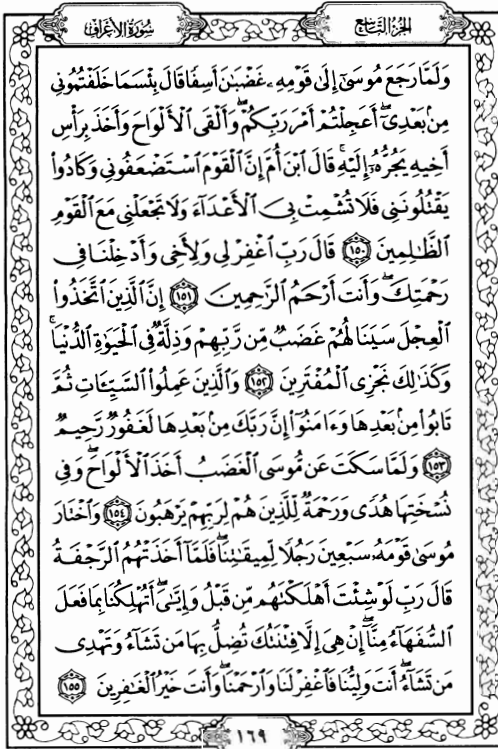 سُورَةُ الأَعْرَافِ
الجُزْءُ التَّاسِعُ
وَلَمَّا رَجَعَ مُوسَىٰٓ إِلَىٰ قَوْمِهِۦ غَضْبَٰنَ أَسِفًا قَالَ بِئْسَمَا خَلَفْتُمُونِي
مِنۢ بَعْدِىٓۖ أَعَجِلْتُمْ أَمْرَ رَبِّكُمْۖ وَأَلْقَى ٱلْأَلْوَاحَ وَأَخَذَ بِرَأْسِ
أَخِيهِ يَجُرُّهُۥٓ إِلَيْهِۚ قَالَ ٱبْنَ أُمَّ إِنَّ ٱلْقَوْمَ ٱسْتَضْعَفُونِي وَكَادُوا۟
يَقْتُلُونَنِي فَلَا تُشْمِتْ بِىَ ٱلْأَعْدَآءَ وَلَا تَجْعَلْنِي مَعَ ٱلْقَوْمِ
ٱلظَّٰلِمِينَ ١٥٠ قَالَ رَبِّ ٱغْفِرْ لِي وَلِأَخِي وَأَدْخِلْنَا فِي
رَحْمَتِكَۖ وَأَنتَ أَرْحَمُ ٱلرَّٰحِمِينَ ١٥١ إِنَّ ٱلَّذِينَ ٱتَّخَذُوا۟
ٱلْعِجْلَ سَيَنَالُهُمْ غَضَبٌ مِّن رَّبِّهِمْ وَذِلَّةٌ فِي ٱلْحَيَوٰةِ ٱلدُّنْيَاۚ
وَكَذَٰلِكَ نَجْزِي ٱلْمُفْتَرِينَ ١٥٢ وَٱلَّذِينَ عَمِلُوا۟ ٱلسَّيِّـَٔاتِ ثُمَّ
تَابُوا۟ مِنۢ بَعْدِهَا وَءَامَنُوٓا۟ إِنَّ رَبَّكَ مِنۢ بَعْدِهَا لَغَفُورٌ رَّحِيمٌ
١٥٣ وَلَمَّا سَكَتَ عَن مُّوسَى ٱلْغَضَبُ أَخَذَ ٱلْأَلْوَاحَۖ وَفِي
نُسْخَتِهَا هُدًى وَرَحْمَةٌ لِّلَّذِينَ هُمْ لِرَبِّهِمْ يَرْهَبُونَ ١٥٤ وَٱخْتَارَ
مُوسَىٰ قَوْمَهُۥ سَبْعِينَ رَجُلًا لِّمِيقَٰتِنَاۖ فَلَمَّآ أَخَذَتْهُمُ ٱلرَّجْفَةُ
قَالَ رَبِّ لَوْ شِئْتَ أَهْلَكْتَهُم مِّن قَبْلُ وَإِيَّٰىَۖ أَتُهْلِكُنَا بِمَا فَعَلَ
ٱلسُّفَهَآءُ مِنَّآۖ إِنْ هِىَ إِلَّا فِتْنَتُكَ تُضِلُّ بِهَا مَن تَشَآءُ وَتَهْدِي
مَن تَشَآءُۖ أَنتَ وَلِيُّنَا فَٱغْفِرْ لَنَا وَٱرْحَمْنَاۖ وَأَنتَ خَيْرُ ٱلْغَٰفِرِينَ ١٥٥
١٦٩